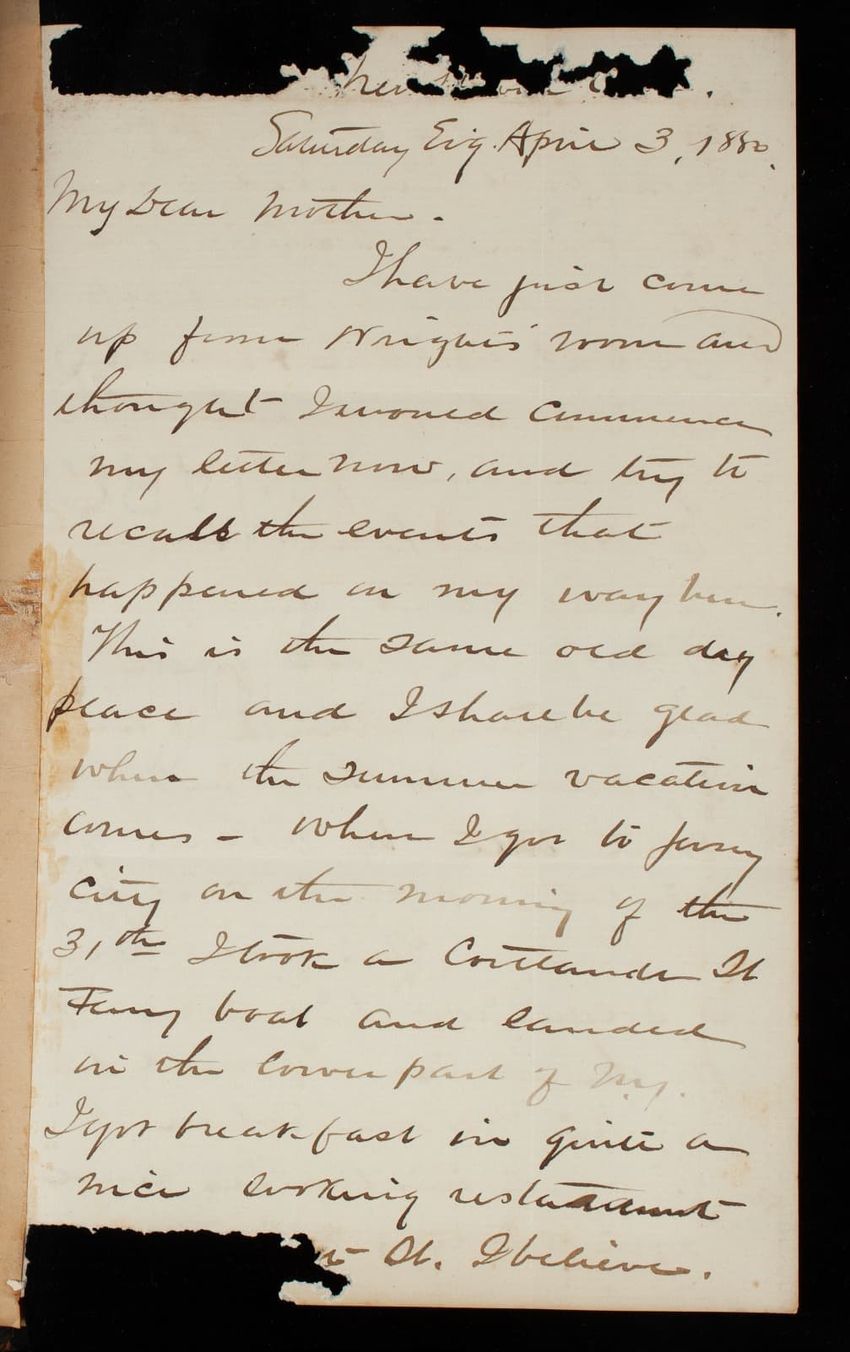 Saturday Evg. April 3, 1880.
My Dear Mother.
I have just come
up from Wright's room and
thought I would commence
my letter now, and try to
recall the events that
happened on my way here.
This is the same old dry
place and I shall be glad
when the summer vacation
comes - When I got to Jersey
City on the morning of the
31th I took a Cortlandt St
Ferry boat and landed
in the lower part of N.Y.
I got breakfast in quite a
nice looking restaurant
St. I believe.